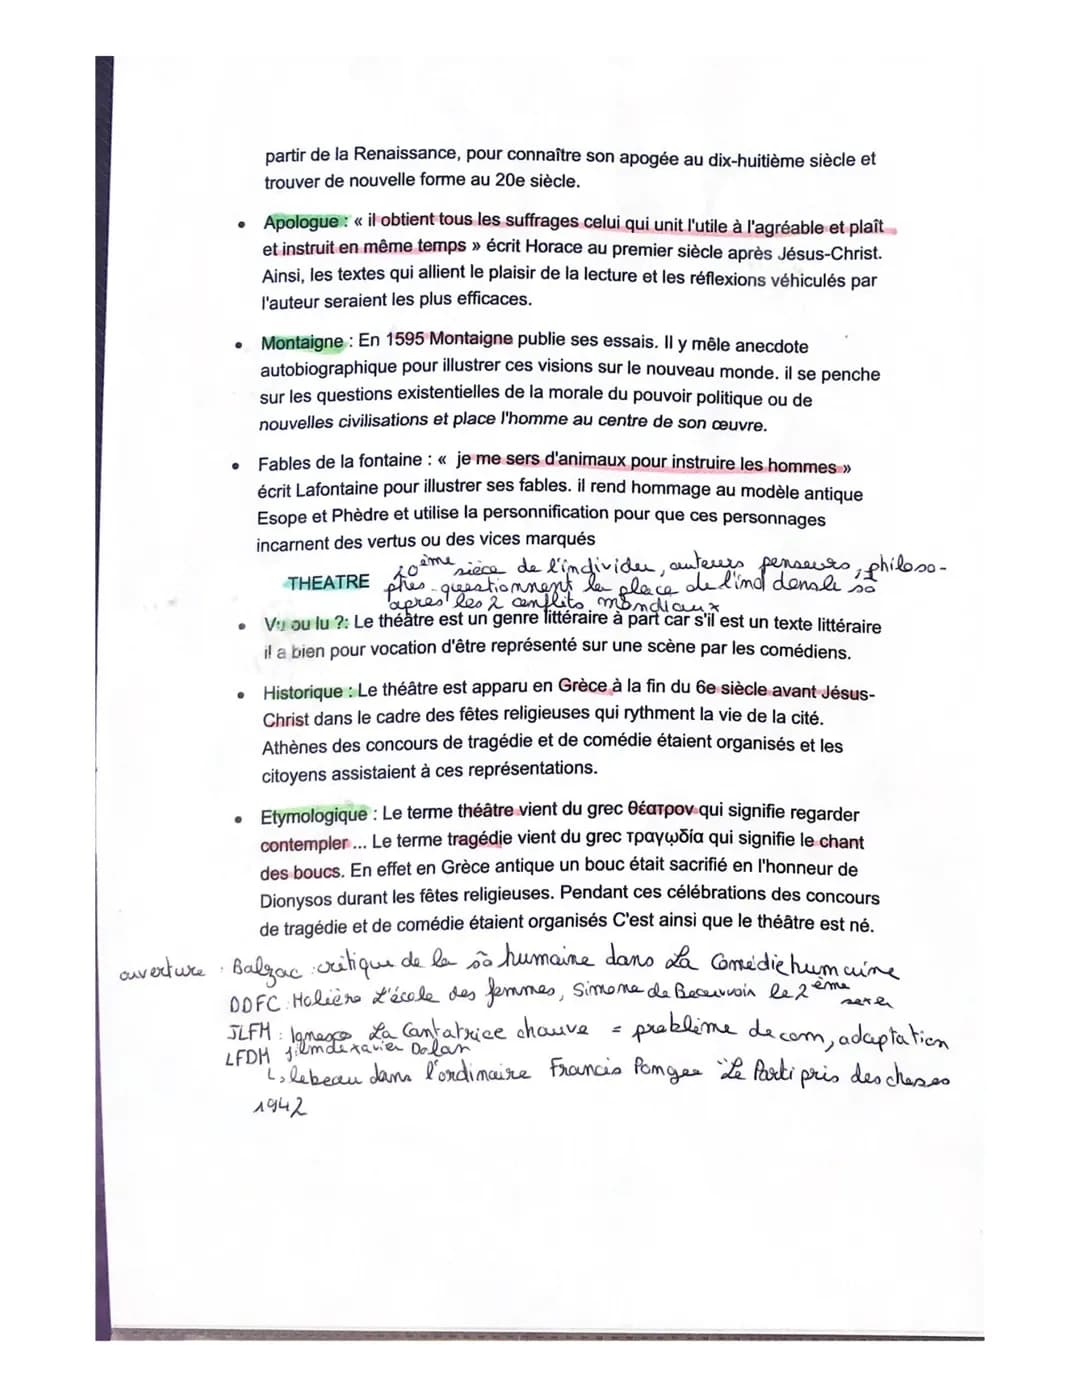 partir de la Renaissance, pour connaître son apogée au dix-huitième siècle et
trouver de nouvelle forme au 20e siècle.
• Apologue : « il obtient tous les suffrages celui qui unit l'utile à l'agréable et plaît
et instruit en même temps » écrit Horace au premier siècle après Jésus-Christ.
Ainsi, les textes qui allient le plaisir de la lecture et les réflexions véhiculés par
l'auteur seraient les plus efficaces.
• Montaigne : En 1595 Montaigne publie ses essais. Il y mêle anecdote
autobiographique pour illustrer ces visions sur le nouveau monde. il se penche
sur les questions existentielles de la morale du pouvoir politique ou de
nouvelles civilisations et place l'homme au centre de son œuvre.
• Fables de la fontaine : « je me sers d'animaux pour instruire les hommes »
écrit Lafontaine pour illustrer ses fables. il rend hommage au modèle antique
Esope et Phèdre et utilise la personnification pour que ces personnages
incarnent des vertus ou des vices marqués
20ème sièce de l'individu, auteurs penseurs, philoso-
THEATRE phes questionnent la place de l'ind dans la sō
apres les 2 conflits mondiaux
• Vu ou lu ?: Le théâtre est un genre littéraire à part car s'il est un texte littéraire
il a bien pour vocation d'être représenté sur une scène par les comédiens.
• Historique : Le théâtre est apparu en Grèce à la fin du 6e siècle avant Jésus-
Christ dans le cadre des fêtes religieuses qui rythment la vie de la cité.
Athènes des concours de tragédie et de comédie étaient organisés et les
citoyens assistaient à ces représentations.
• Etymologique : Le terme théâtre vient du grec θέατρον qui signifie regarder
contempler ... Le terme tragédie vient du grec τραγῳδία qui signifie le chant
des boucs. En effet en Grèce antique un bouc était sacrifié en l'honneur de
Dionysos durant les fêtes religieuses. Pendant ces célébrations des concours
de tragédie et de comédie étaient organisés C'est ainsi que le théâtre est né.
ouverture : Balzac : critique de la sō humaine dans La Comédie humaine
DDFC : Molière L'école des femmes, Simone de Beauvoir le 2ème
sexe
JLFM : Ionesco La Cantatrice chauve = problème de com, adaptation
LFDM film de xavier Dolan
↳ le beau dans l'ordinaire Francis Ponge "Le Parti pris des choses
1942